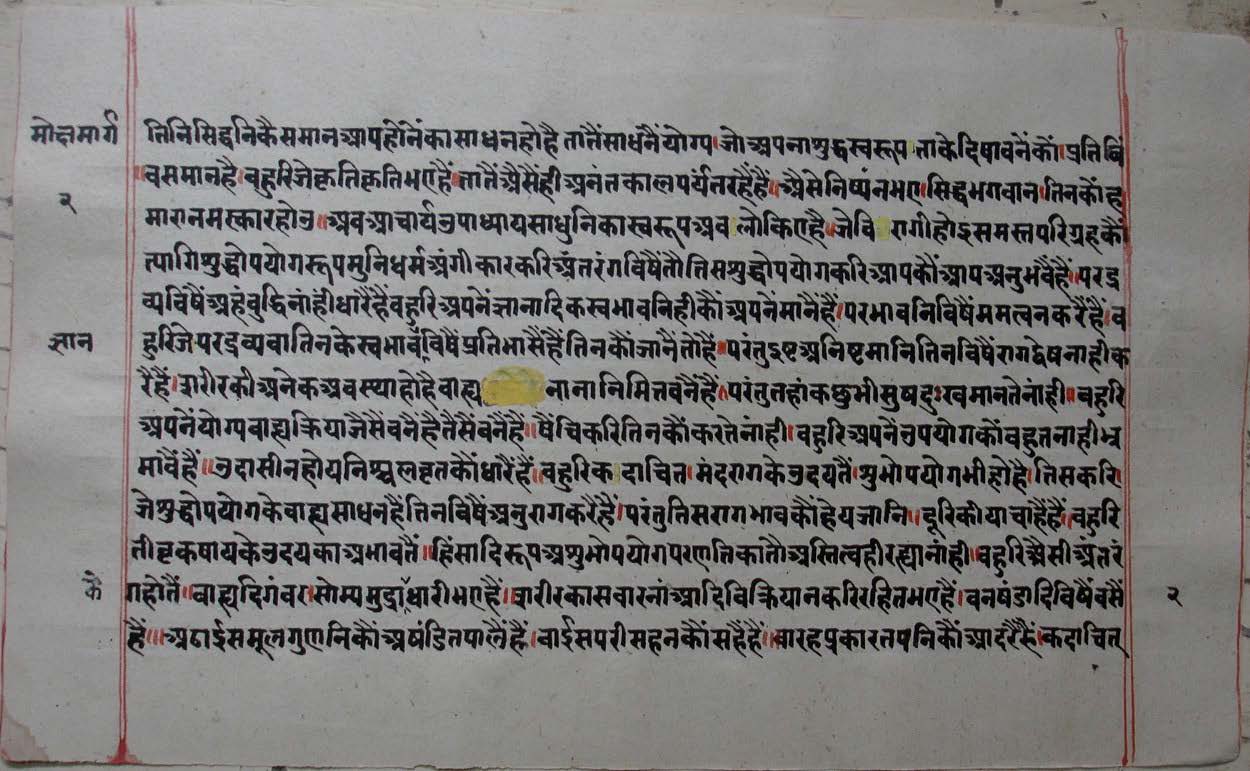 मोक्षमार्ग
२
ज्ञान
कै
तिनिसिद्धनिकैसमानआपहोनेंकासाधनहोहै तातैंसाधनैंयोग्य।जोअपनाशुद्धस्वरूप।ताकेदिषावनेंकों।प्रतिबिं
।बसमानहै।बहुरिजेकृतिकृतिभएहैं।तातैंअैसैंहीअनंतकालपर्यंतरहैंहैं॥अैसेनिष्पंनभए।सिद्धभगवान।तिनकोंह
मारानमस्कारहोउ॥अबआचार्यउपाध्यायसाधुनिकास्वरूपअवलोकिएहै॥जेविरागीहोइसमस्तपरिग्रहकौं
त्यागिशुद्धोपयोगरूपमुनिधर्मअंगीकारकरिअंतरंगविषैंतौतिसशुद्धोपयोगकरिआपकौंआपअनुभवैंहैं॥परद्र
व्यविषैंअहंबुद्धिनांहींधारैंहैंबहुरिअपनेंज्ञानादिकस्वभावनिहीकौंअपनेंमानैंहैं।परभावनिविषैंममत्वनकरैंहैं।ब
हुरिजेपरद्रव्यवातिनकेस्वभावविषैंप्रतिभासैंहैंतिनकौंजानैंतोहैं॥परंतुइष्टअनिष्टमानितिनविषैंरागद्वेषनाहीक
रैहैं।शरीरकीअनेकअवस्थाहोहैबाह्य नानानिमित्तबनैंहैं।परंतुतहांकछुभीसुषदुःखमानतेनांही॥बहुरि
अपनेंयोग्यबाह्यक्रियाजैसैंबनैंहैंतैसैंबनैंहैं॥षैंचिकरितिनकौंकरतेनांही।बहुरिअपनेंउपयोगकोंबहुतनाहीभ्र
मावैंहैं॥उदासीनहोयनिश्चलवृतकौंधारैंहैं।बहुरिकदाचित।मंदरागकेउदयतैं।शुभोपयोगभीहोहै।तिसकरि
जेशुद्धोपयोगकेबाह्यसाधनहैंतिनविषैंअनुरागकरैहैं।परंतुतिसरागभावकौंहेयजानि॥दूरिकीयाचाहैंहैं॥बहुरि
तीव्रकषायकेउदयकाअभावतैं॥हिंसादिरूपअशुभोपयोगपरणतिकातौअस्तित्वहीरह्यानांही॥बहुरिअैसीअंतरं
गहोतैं॥बाह्यदिगंबर।सोम्यमुद्राधारीभएहैं॥शरीरकासवारनांआदिविक्रियानकरिरहितभएहैं।बनषंडादिविषैंबसैं
हैं॥अठाईसमूलगुणनिकौंअषंडितपालैंहैं॥बाईसपरीसहनकौंसहैंहैं॥बारहप्रकारतपनिकौंआदरैहैं।कदाचित्
२